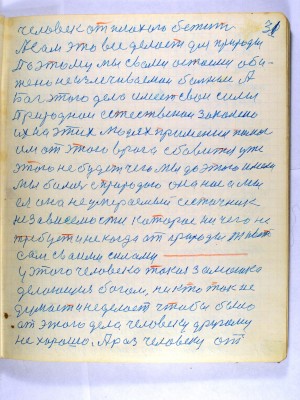 31
человек от плохого бежит
А сам это все делает для природы
Поэтому мы своим остаемся оби-
жено неизлечиваемо больным А
Бог этого дела имеет свои силы
Природной естественной закалено
их на этих людях применил
им от этого врага сбавится уже
этого не будет чего мы до этого имели
Мы болея с природою она нас имеет
ея она неумераемый источник
независемости которае ни чего не
требует и некогда от природы Живет
сам своими силами
у этого человека такая занимака
делающия богом, ни кто так не
думает и неделает чтобы было
от этого дела человеку другому
не хорошо. А раз человеку от